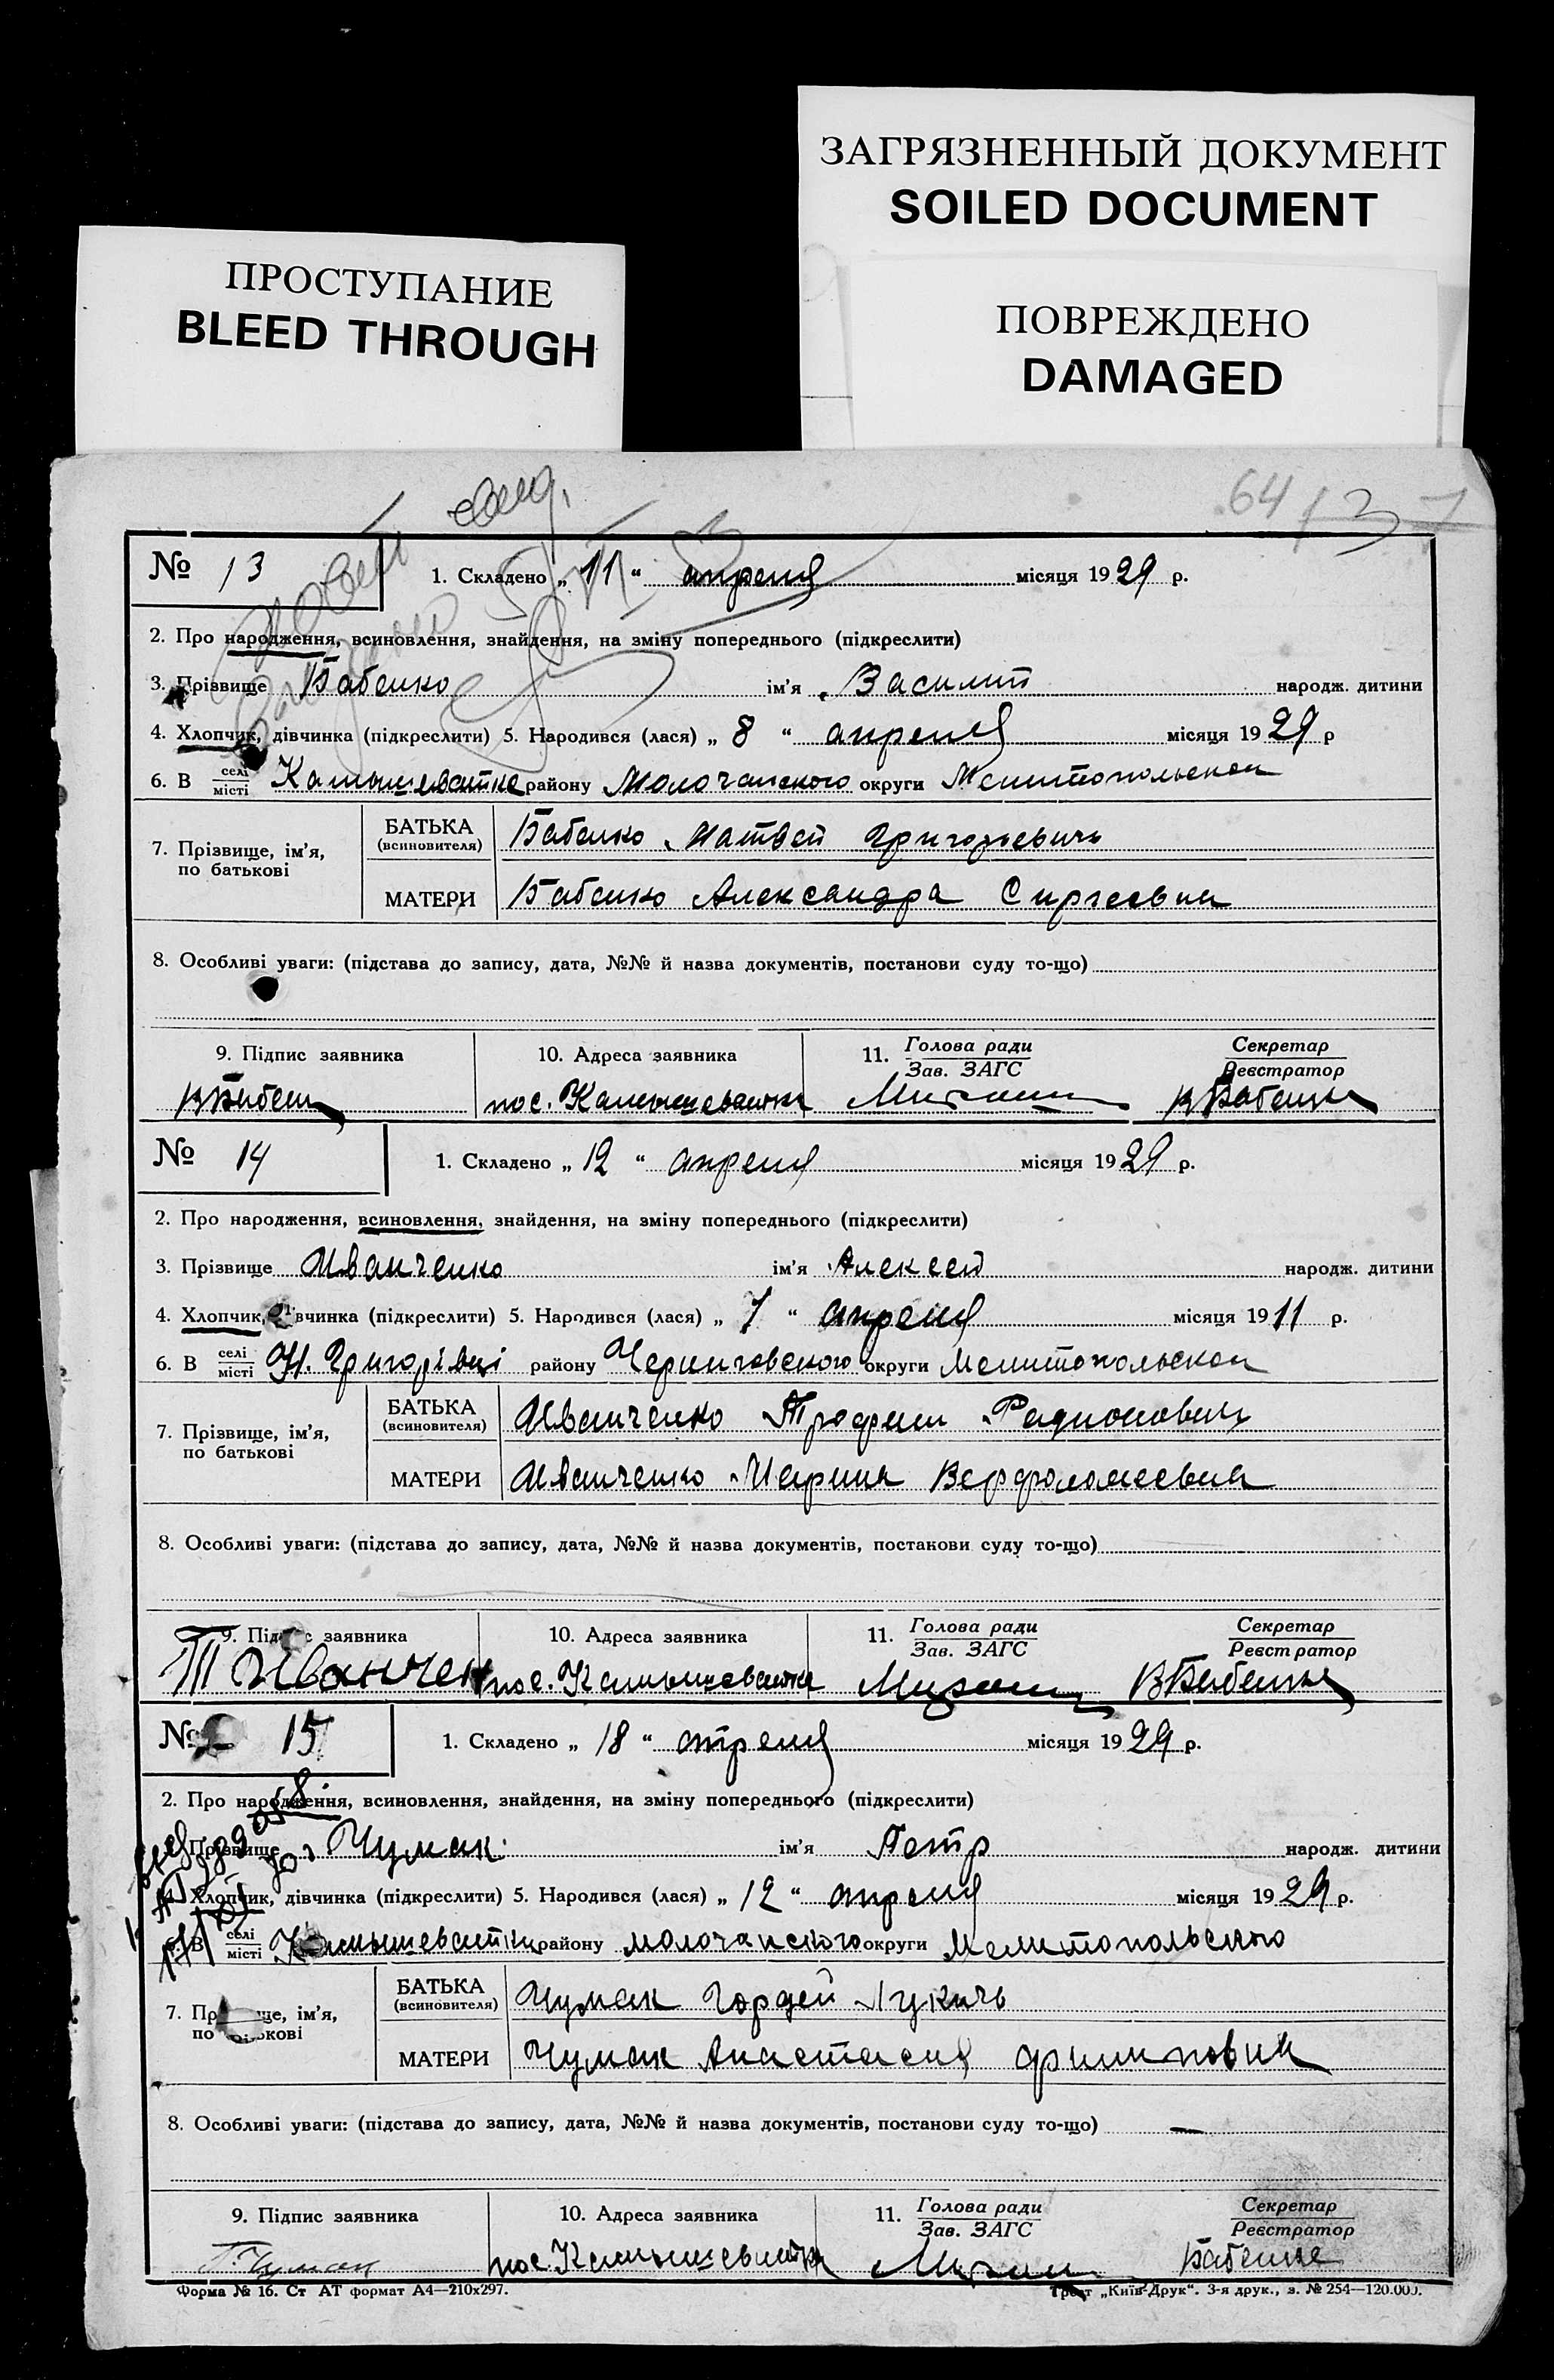 ЗАГРЯЗНЕННЫЙ ДОКУМЕНТ
SOILED DOCUMENT
ПРОСТУПАНИЕ
BLEED THROUGH
ПОВРЕЖДЕНО
DAMAGED
64
№ 13
1. Складено „ 11 “ апреля місяця 1929 р.
2. Про народження, всиновлення, знайдення, на зміну попереднього (підкреслити)
3. Прізвище Бабенко ім'я Василий народж. дитини
4. Хлопчик, дівчинка (підкреслити) 5. Народився (лася) „ 8 “ апреля місяця 1929 р
6. В селі місті Камышеватке району Молочанского округи Мелитопольской
7. Прізвище, ім'я, по батькові
БАТЬКА (всиновителя) Бабенко Матвей Григорьевичь
МАТЕРИ Бабенко Александра Сиргеевна
8. Особливі уваги: (підстава до запису, дата, №№ й назва документів, постанови суду то-що)
9. Підпис заявника 10. Адреса заявника 11. Голова ради Зав. ЗАГС Секретар Реєстратор
пос. Камышеватка
№ 14
1. Складено „ 12 “ апреля місяця 1929 р.
2. Про народження, всиновлення, знайдення, на зміну попереднього (підкреслити)
3. Прізвище Иванченко ім'я Алексей народж. дитини
4. Хлопчик, дівчинка (підкреслити) 5. Народився (лася) „ 7 “ апреля місяця 1911 р.
6. В селі місті Н. Григорівці району Черниговского округи Мелитопольской
7. Прізвище, ім'я, по батькові
БАТЬКА (всиновителя) Иванченко Трофим Радионович
МАТЕРИ Иванченко Марина Верфоломеевна
8. Особливі уваги: (підстава до запису, дата, №№ й назва документів, постанови суду то-що)
9. Підпис заявника 10. Адреса заявника 11. Голова ради Зав. ЗАГС Секретар Реєстратор
Т Иванчен пос. Камышеватка
№ 15
1. Складено „ 18 “ апреля місяця 1929 р.
2. Про народження, всиновлення, знайдення, на зміну попереднього (підкреслити)
Прізвище Чумак ім'я Петр народж. дитини
Хлопчик, дівчинка (підкреслити) 5. Народився (лася) „ 12 “ апреля місяця 1929 р.
6. В селі місті Камышеватки району молочанского округи Мелитопольского
7. Прізвище, ім'я, по батькові
БАТЬКА (всиновителя) Чумак Гордей Лукичь
МАТЕРИ Чумак Анастасия филиповна
8. Особливі уваги: (підстава до запису, дата, №№ й назва документів, постанови суду то-що) —
9. Підпис заявника 10. Адреса заявника 11. Голова ради Зав. ЗАГС Секретар Реєстратор
Г. Чумак пос. Камышеватка Бабенко
Форма № 16. Ст АТ формат А4—210х297.
Трест „Київ-Друк“. 3-я друк., з. № 254—120.000.